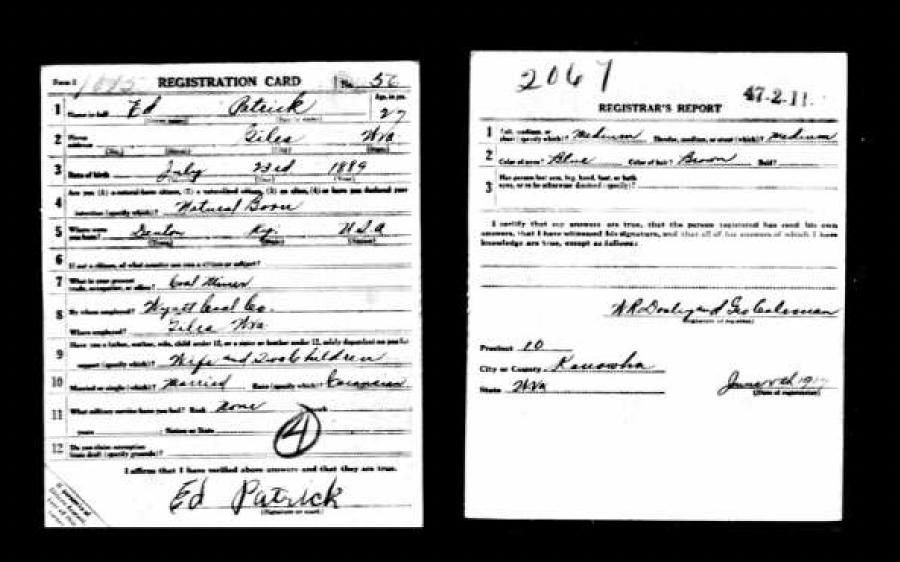 Form 1 1015 REGISTRATION CARD No. 56
1 Name in full Ed Patrick Age, in yrs. 27
2 Home address Giles Wva
3 Date of birth July 23rd 1889
4 Are you (1) a natural-born citizen, (2) a naturalized citizen, (3) an alien, (4) or have you declared your
intention (specify which)? Natural Born
5 Where were you born? Denton Ky. U.S.A
6 If not a citizen, of what country are you a citizen or subject?
7 What is your present trade, occupation, or office? Coal Miner
8 By whom employed? Wyatt Coal Co.
Where employed? Giles Wva
9 Have you a father, mother, wife, child under 12, or a sister or brother under 12, solely dependent on you for
support (specify which)? Wife and Two Children
10 Married or single (which)? Married Race (specify which)? Caucasian
11 What military service have you had? Rank None branch
years Nation or State
4
12 Do you claim exemption from draft (specify grounds)?
I affirm that I have verified above answers and that they are true.
Ed Patrick
(Signature or mark)
2067
47-2-11.
REGISTRAR'S REPORT
1 Tall, medium, or short (which)? Medium Slender, medium, or stout (which)? Medium
2 Color of eyes? Blue Color of hair? Brown Bald?
3 Has person lost arm, leg, hand, foot, or both
eyes, or is he otherwise disabled (specify)?
I certify that my answers are true, that the person registered has read his own
answers, that I have witnessed his signature, and that all of his answers of which I have
knowledge are true, except as follows:
(Signature of registrar)
Precinct 10
City or County Kanawha
State Wva June 5th 1917
(Date of registration)